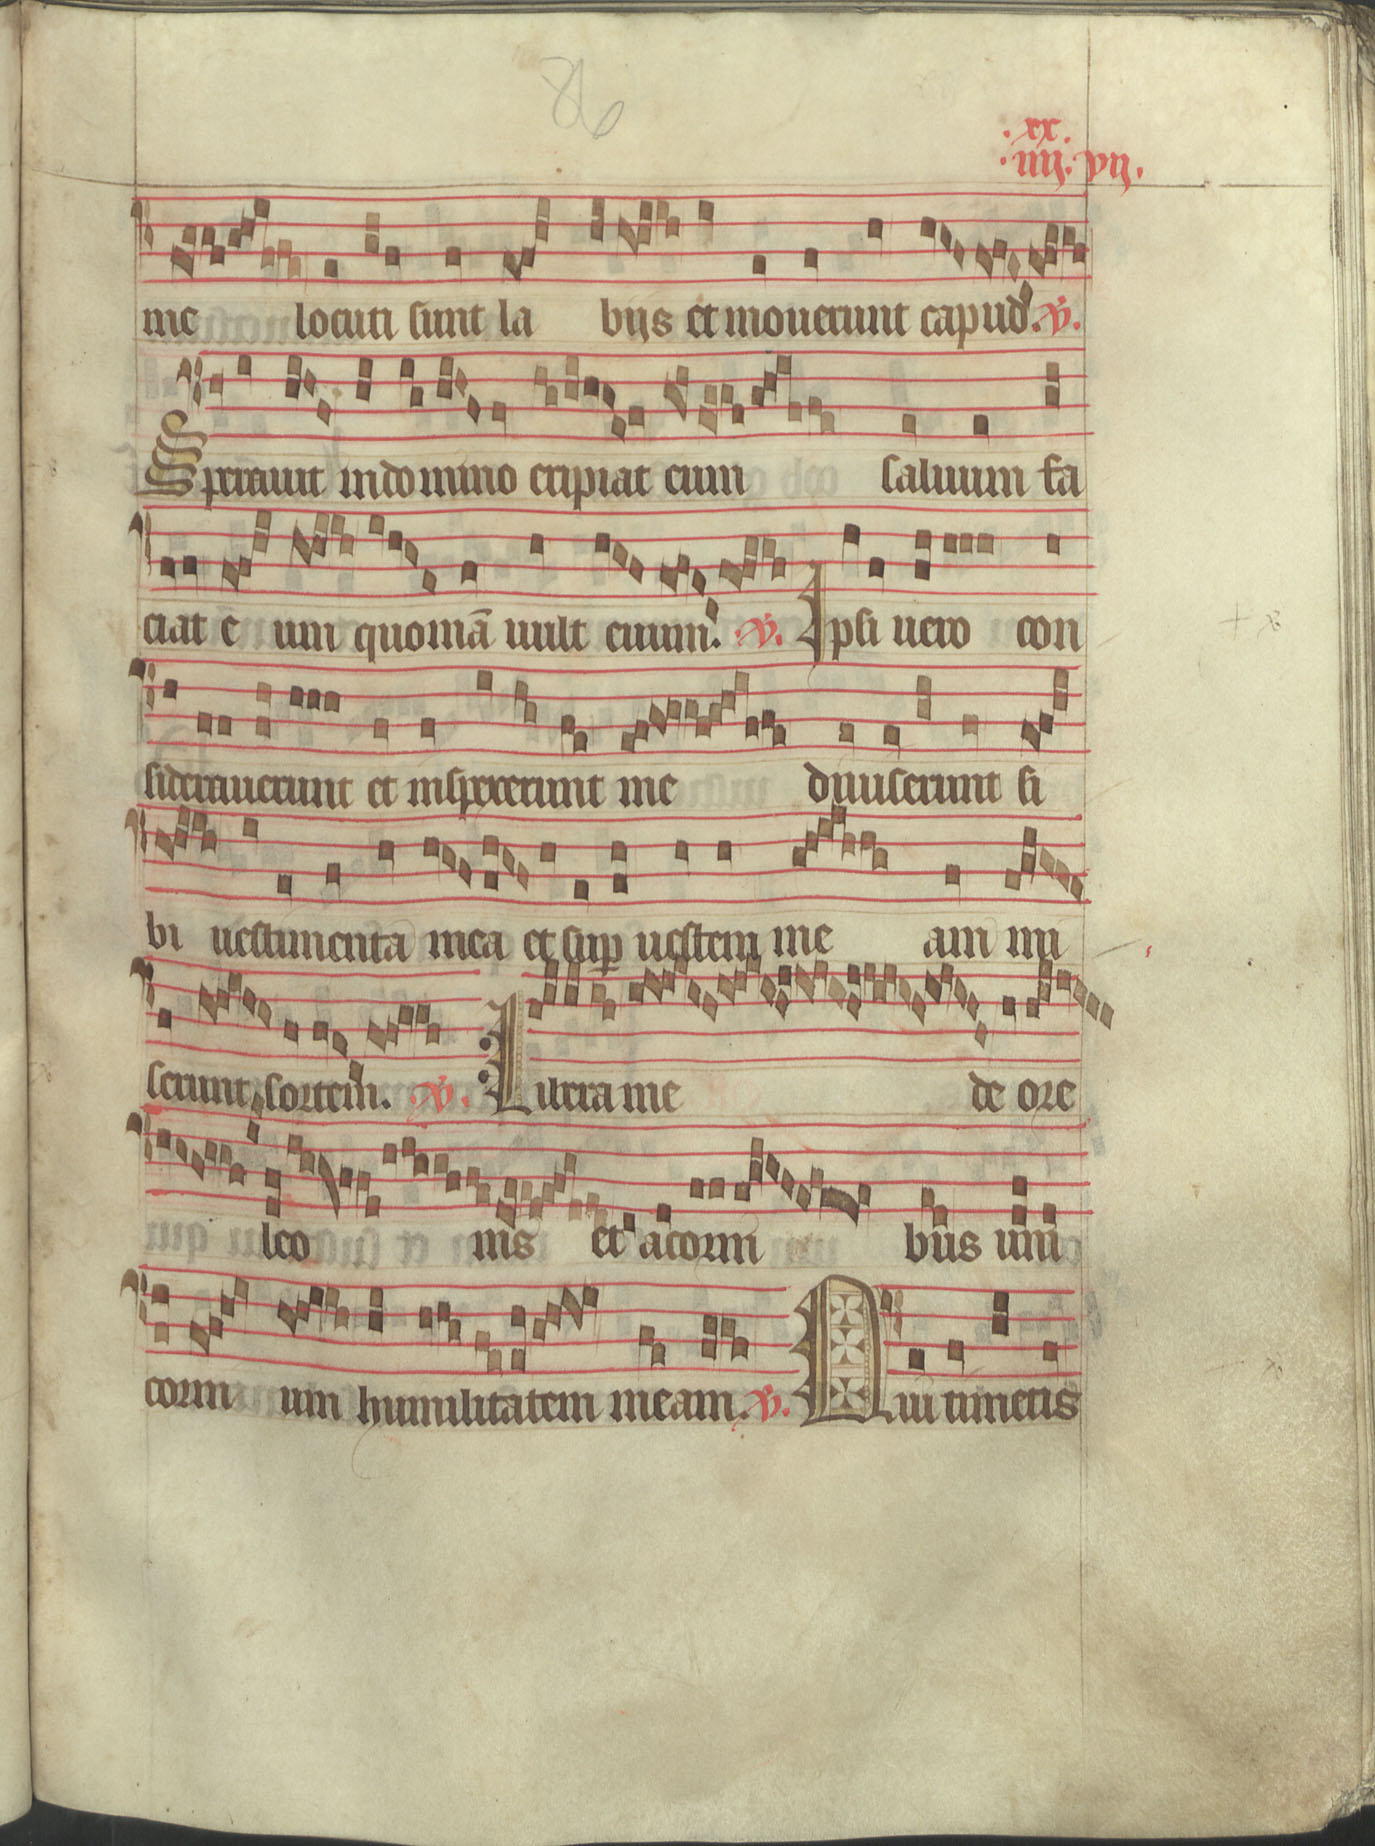 86
.xx.
.iiij. vij.
me locuti sunt la bijs et mouerunt capud. V.
Sperauit in domino eripiat eum saluum fa
ciat e um quoniā uult eum. V. Ipsi uero con
siderauerunt et inspexerunt me diuiserunt si
bi uestimenta mea et sup uestem me am mi
serunt sortem. V. Libera me de ore
leo nis et a corni bus uni
corni um humilitatem meam. V. Qui timetis